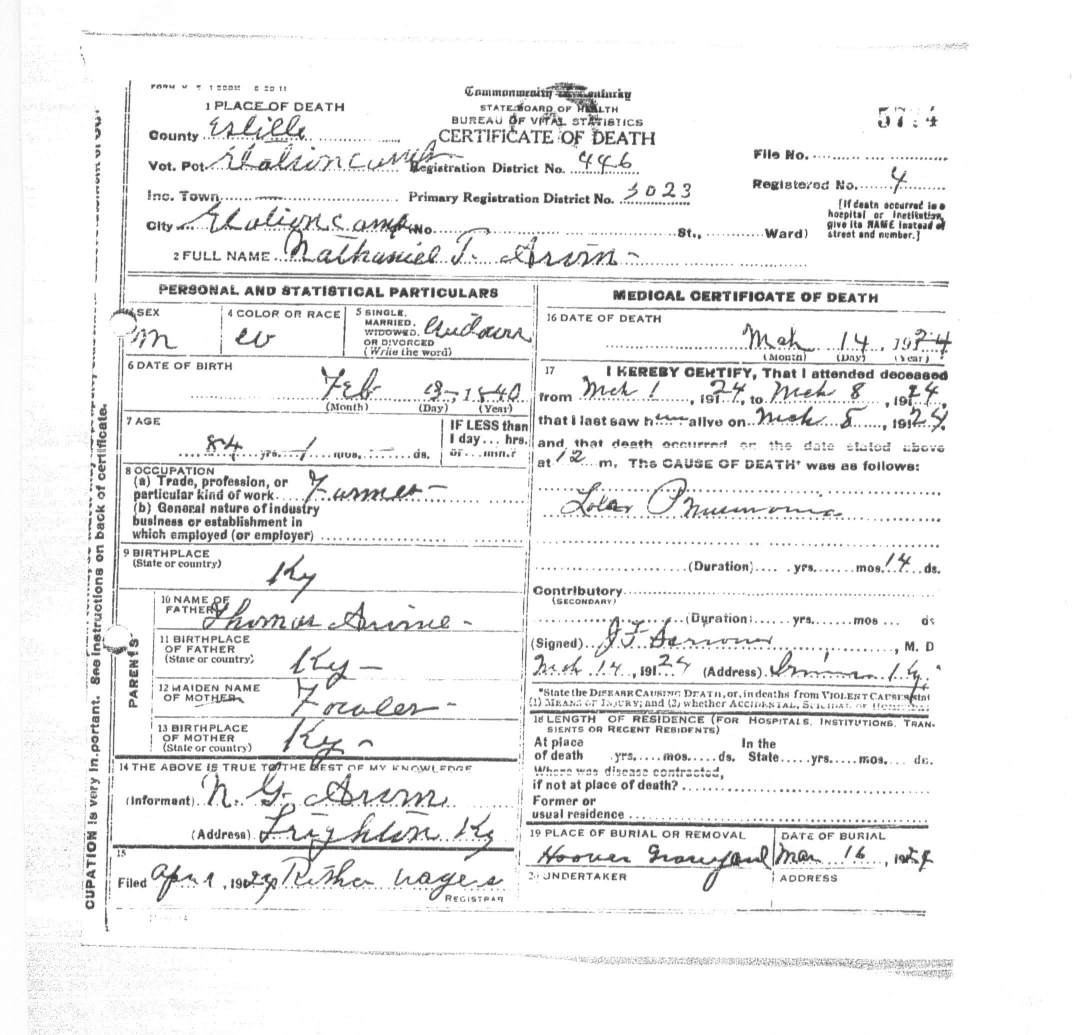 Commonwealth Kentucky
STATE BOARD OF HEALTH
BUREAU OF VITAL STATISTICS
CERTIFICATE OF DEATH
1 PLACE OF DEATH
County Estille
Vot. Pct. Registration District No. 446
Inc. Town Primary Registration District No. 3023
City No. St., Ward)
File No.
Registered No. 4
[If death occurred in a
hospital or institution,
give its NAME instead of
street and number.]
2 FULL NAME Nathaniel T. Arvin
PERSONAL AND STATISTICAL PARTICULARS
SEX
M
4 COLOR OR RACE
W
5 SINGLE,
MARRIED,
WIDOWED,
OR DIVORCED
(Write the word)
6 DATE OF BIRTH
Feb 1840
(Month) (Day) (Year)
7 AGE
84 yrs. 1 mos. ds.
IF LESS than
1 day... hrs.
or... min.?
8 OCCUPATION
(a) Trade, profession, or
particular kind of work Farmer
(b) General nature of industry
business or establishment in
which employed (or employer)
9 BIRTHPLACE
(State or country)
Ky
PARENTS
10 NAME OF
FATHER
Thomas Arvine
11 BIRTHPLACE
OF FATHER
(State or country)
Ky
12 MAIDEN NAME
OF MOTHER
Fowler
13 BIRTHPLACE
OF MOTHER
(State or country)
Ky
14 THE ABOVE IS TRUE TO THE BEST OF MY KNOWLEDGE
(Informant) N. G. Arvin
(Address) Ky
15
Filed Apr 1, 1924
REGISTRAR
MEDICAL CERTIFICATE OF DEATH
16 DATE OF DEATH
Mch 14, 1924
(Month) (Day) (Year)
17 I HEREBY CERTIFY, That I attended deceased
from Mch 1, 1924, to Mch 8, 1924,
that I last saw him alive on Mch 8, 1924,
and that death occurred on the date stated above
at 12 m. The CAUSE OF DEATH* was as follows:
Lobar Pneumonia
(Duration) yrs. mos. 14 ds.
Contributory
(SECONDARY)
(Duration) yrs. mos ds
(Signed), M. D
Mch 14, 1924 (Address) Ky
*State the DISEASE CAUSING DEATH, or, in deaths from VIOLENT CAUSES, state
(1) MEANS OF INJURY; and (2) whether ACCIDENTAL, SUICIDAL or
18 LENGTH OF RESIDENCE (FOR HOSPITALS, INSTITUTIONS, TRAN-
SIENTS OR RECENT RESIDENTS)
At place In the
of death yrs. mos. ds. State yrs. mos. ds.
Where was disease contracted,
if not at place of death?
Former or
usual residence
19 PLACE OF BURIAL OR REMOVAL
Hoover Graveyard
DATE OF BURIAL
Mar 16, 1924
UNDERTAKER
ADDRESS
CUPATION is very important. See instructions on back of certificate.